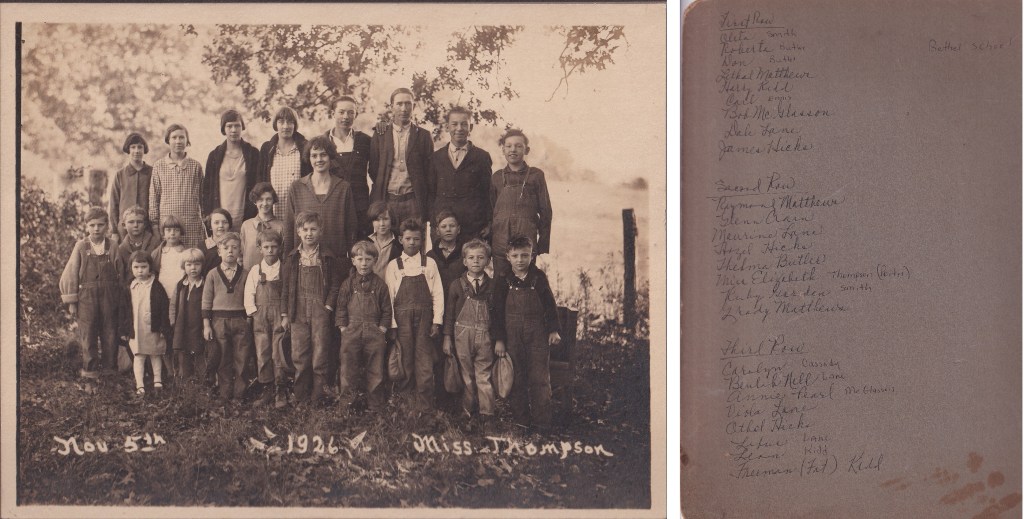 Nov 5th 1926 Miss Thompson
First Row
Bethel School
Smith
Roberta Butler
Don Butler
Ethal Matthews
Harry Kidd
Carl
Bob McGlasson
Dale Lane
James Hicks
Second Row
Raymond Matthews
Glenn Crain
Maurine Lane
Hazel Hicks
Thelma Butler
Miss Elizabeth Thompson
Ruby Smith
Grady Matthews
Third Row
Carolyn Cassidy
Beulah Nell Lane
Annie Pearl McGlasson
Lane
Othel Hicks
Lane
Kidd
Freeman (Fat) Kidd